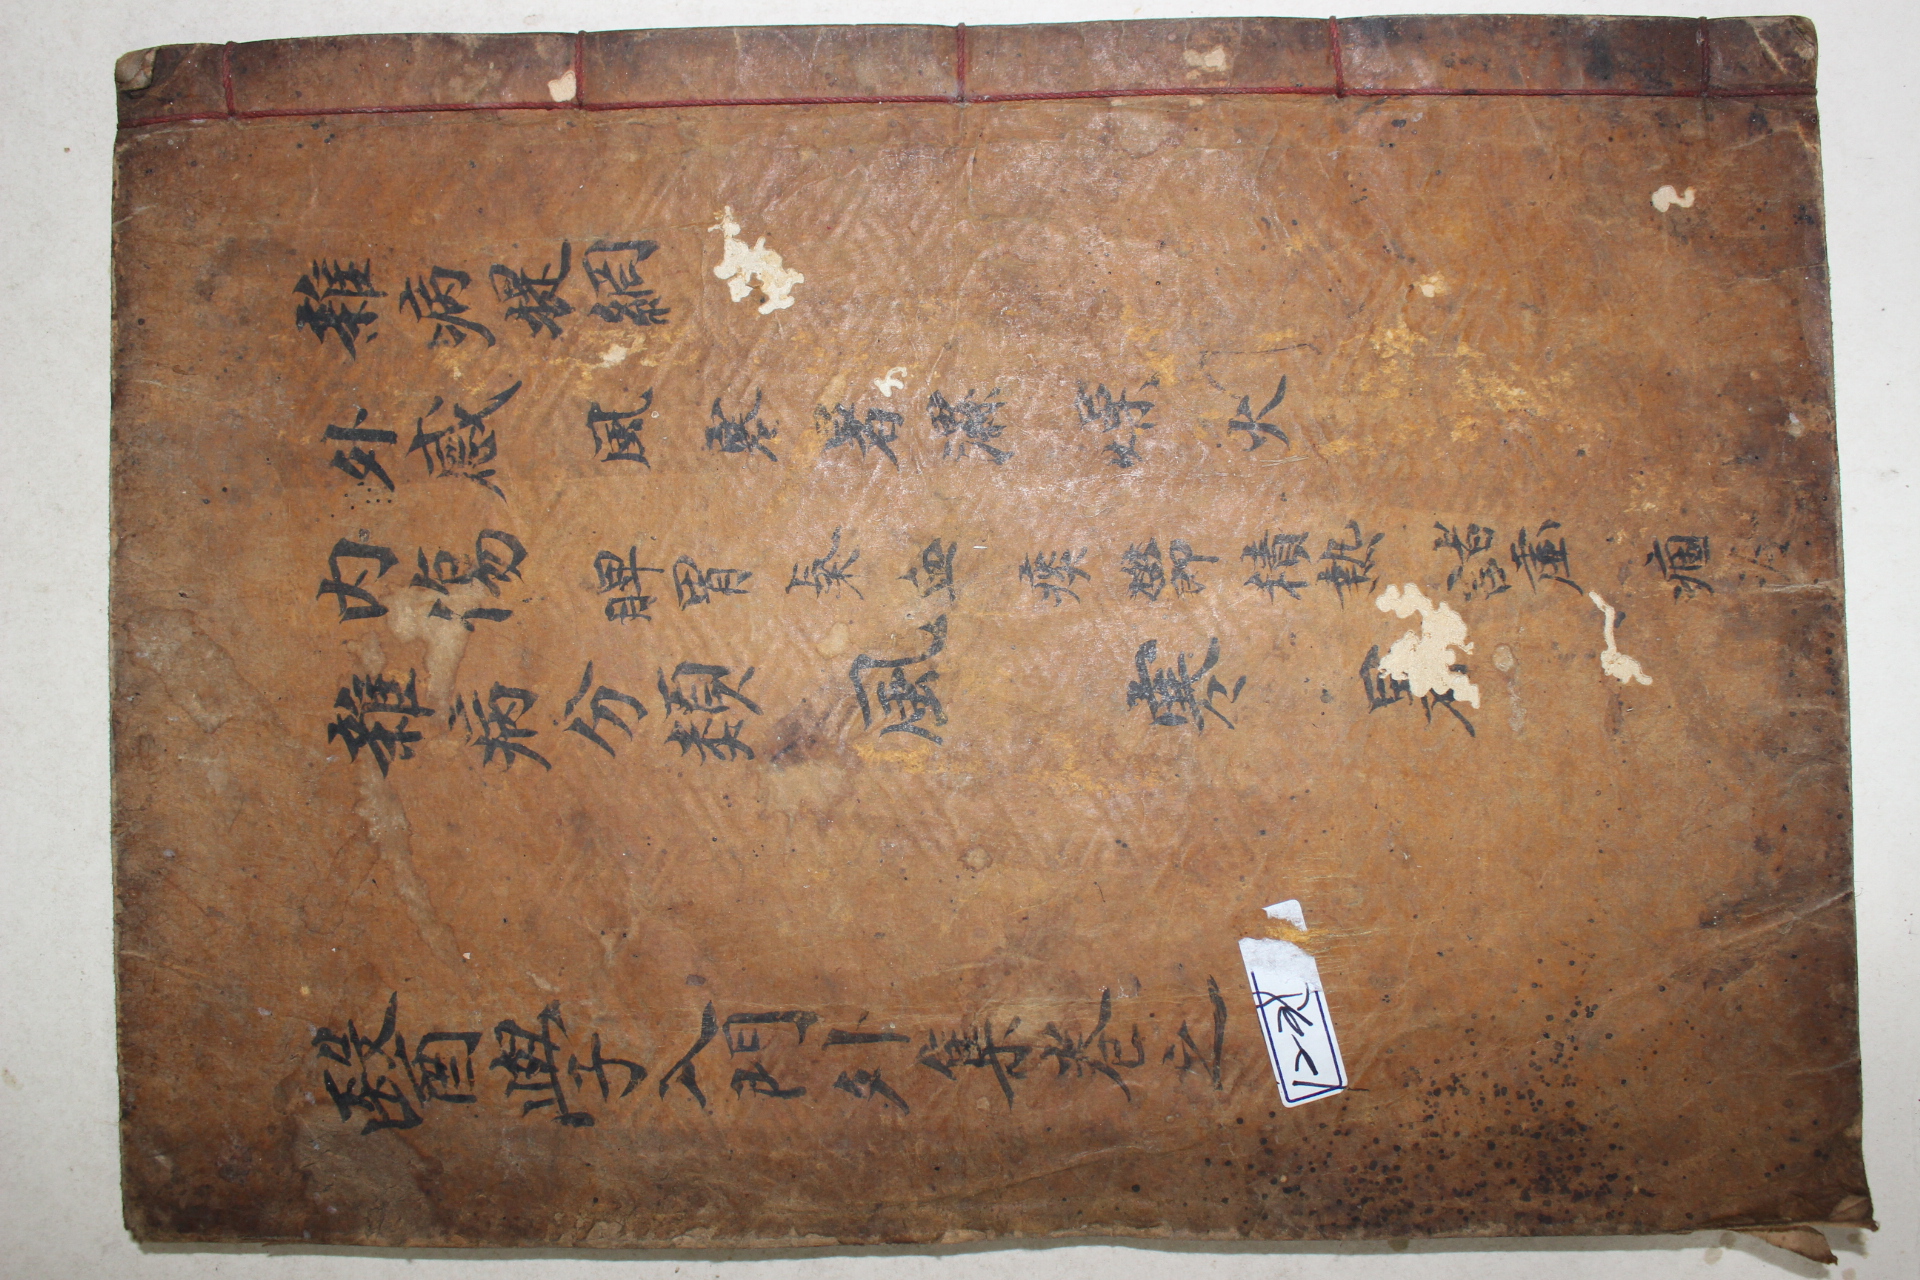 雜病提綱
外感 風 寒 暑 濕 燥 火
内傷 脾胃 氣 血 痰 鬱 積熱 諸虛 痼冷
雜病分類 風 寒
醫學入門外集卷之